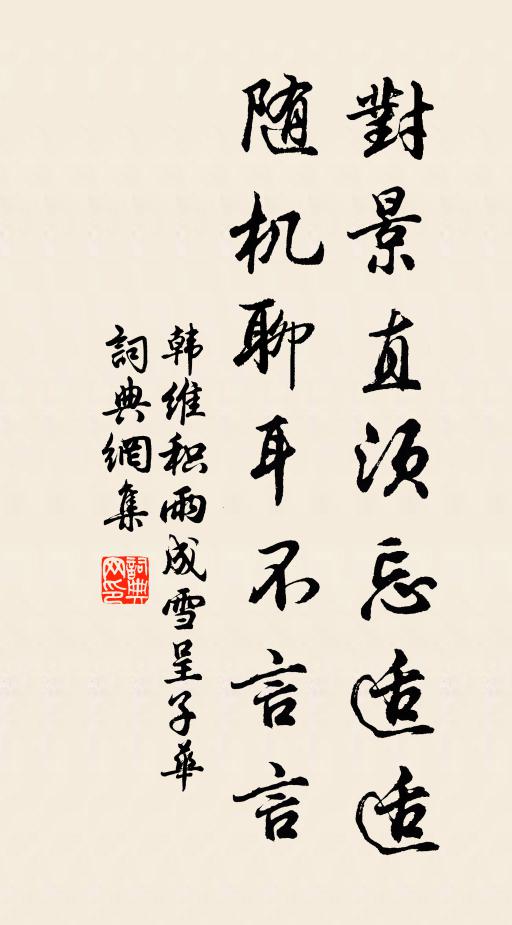 對景直須忘适适
随机聊耳不言言
韩维积雨成雪呈子華
詞典網集
詞典网印